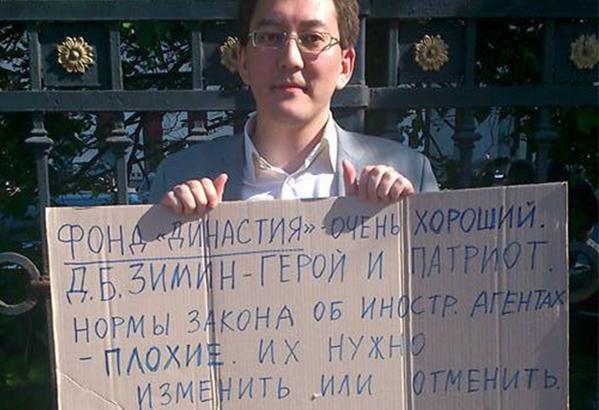 ФОНД «ДИНАСТИЯ» - ОЧЕНЬ ХОРОШИЙ.
Д.Б. ЗИМИН - ГЕРОЙ И ПАТРИОТ.
НОРМЫ ЗАКОНА ОБ ИНОСТР. АГЕНТАХ
- ПЛОХИЕ. ИХ НУЖНО
ИЗМЕНИТЬ ИЛИ ОТМЕНИТЬ.